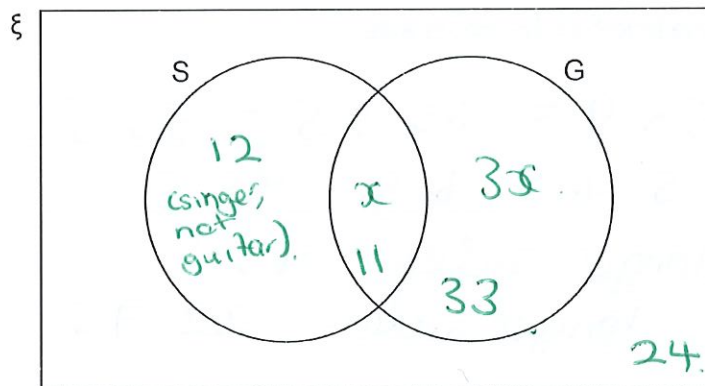 ξ
S
G
12
(singer,
not
guitar).
x
11
3x
33
24.